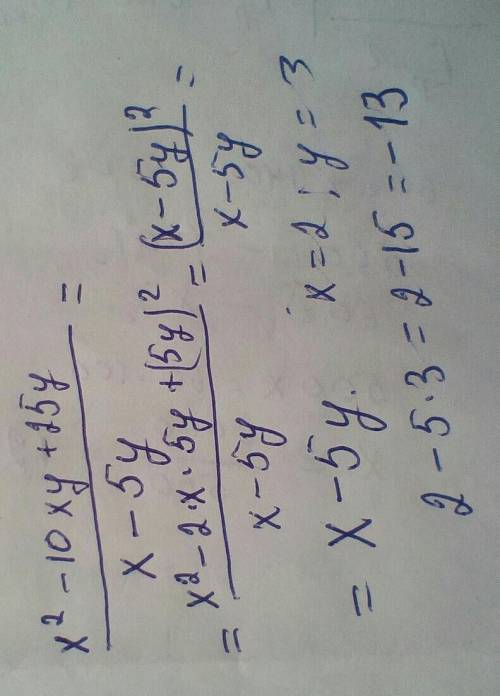 x² - 10xy + 25y =
x - 5y
= x² - 2·x·5y + (5y)² = (x - 5y)² =
x - 5y x - 5y
= x - 5y. x = 2 ; y = 3
2 - 5·3 = 2 - 15 = - 13